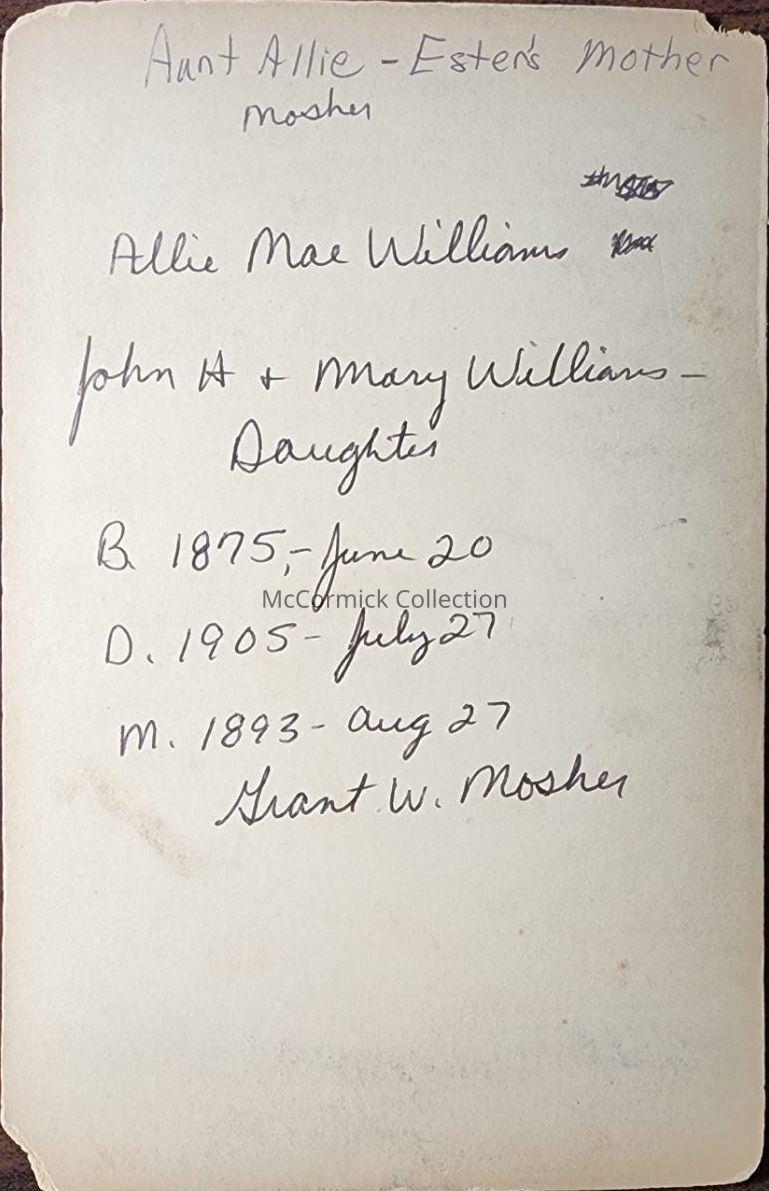 Aunt Allie - Ester's Mother
Mosher
Allie Mae Williams
John H + Mary Williams -
Daughter
B. 1875,- June 20
McCormick Collection
D. 1905 - July 27
M. 1893 - Aug 27
Grant W. Mosher